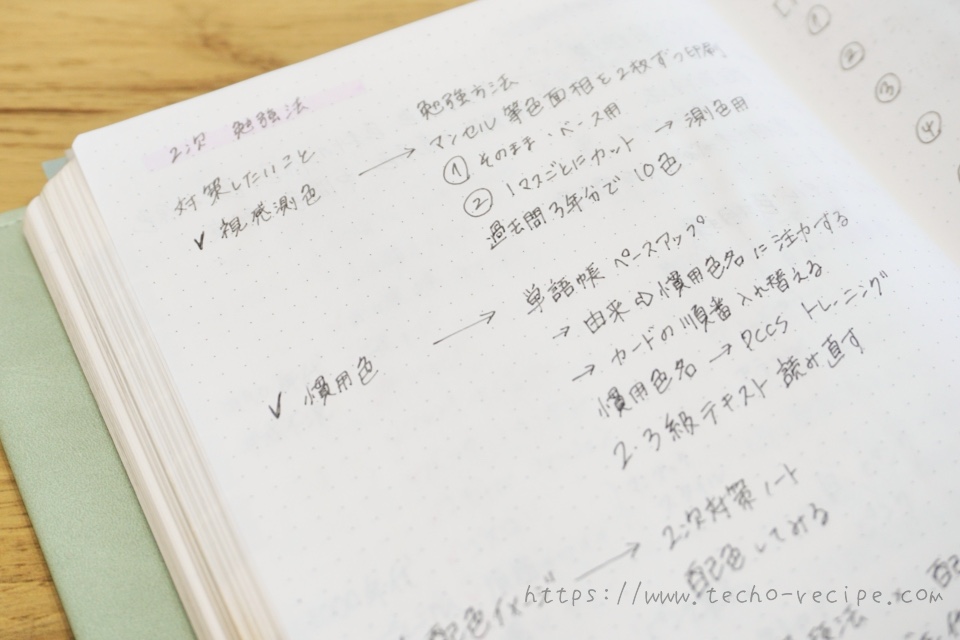 2次 勉強法
対策したいこと
✓ 視感測色
勉強方法
マンセル 等色面相を2枚ずつ印刷
① そのまま・ベース用
② 1マスごとにカット → 測色用
過去問3年分で 10色
✓ 慣用色
単語帳 ペースアップ
→ 由来⇨慣用色名に注力する
→ カードの順番入れ替える
慣用色名 → PCCS トレーニング
2・3級テキスト 読み直す
配色イメージ
2次対策ノート
配色してみる
①
②
③
④
https://www.techo-recipe.com